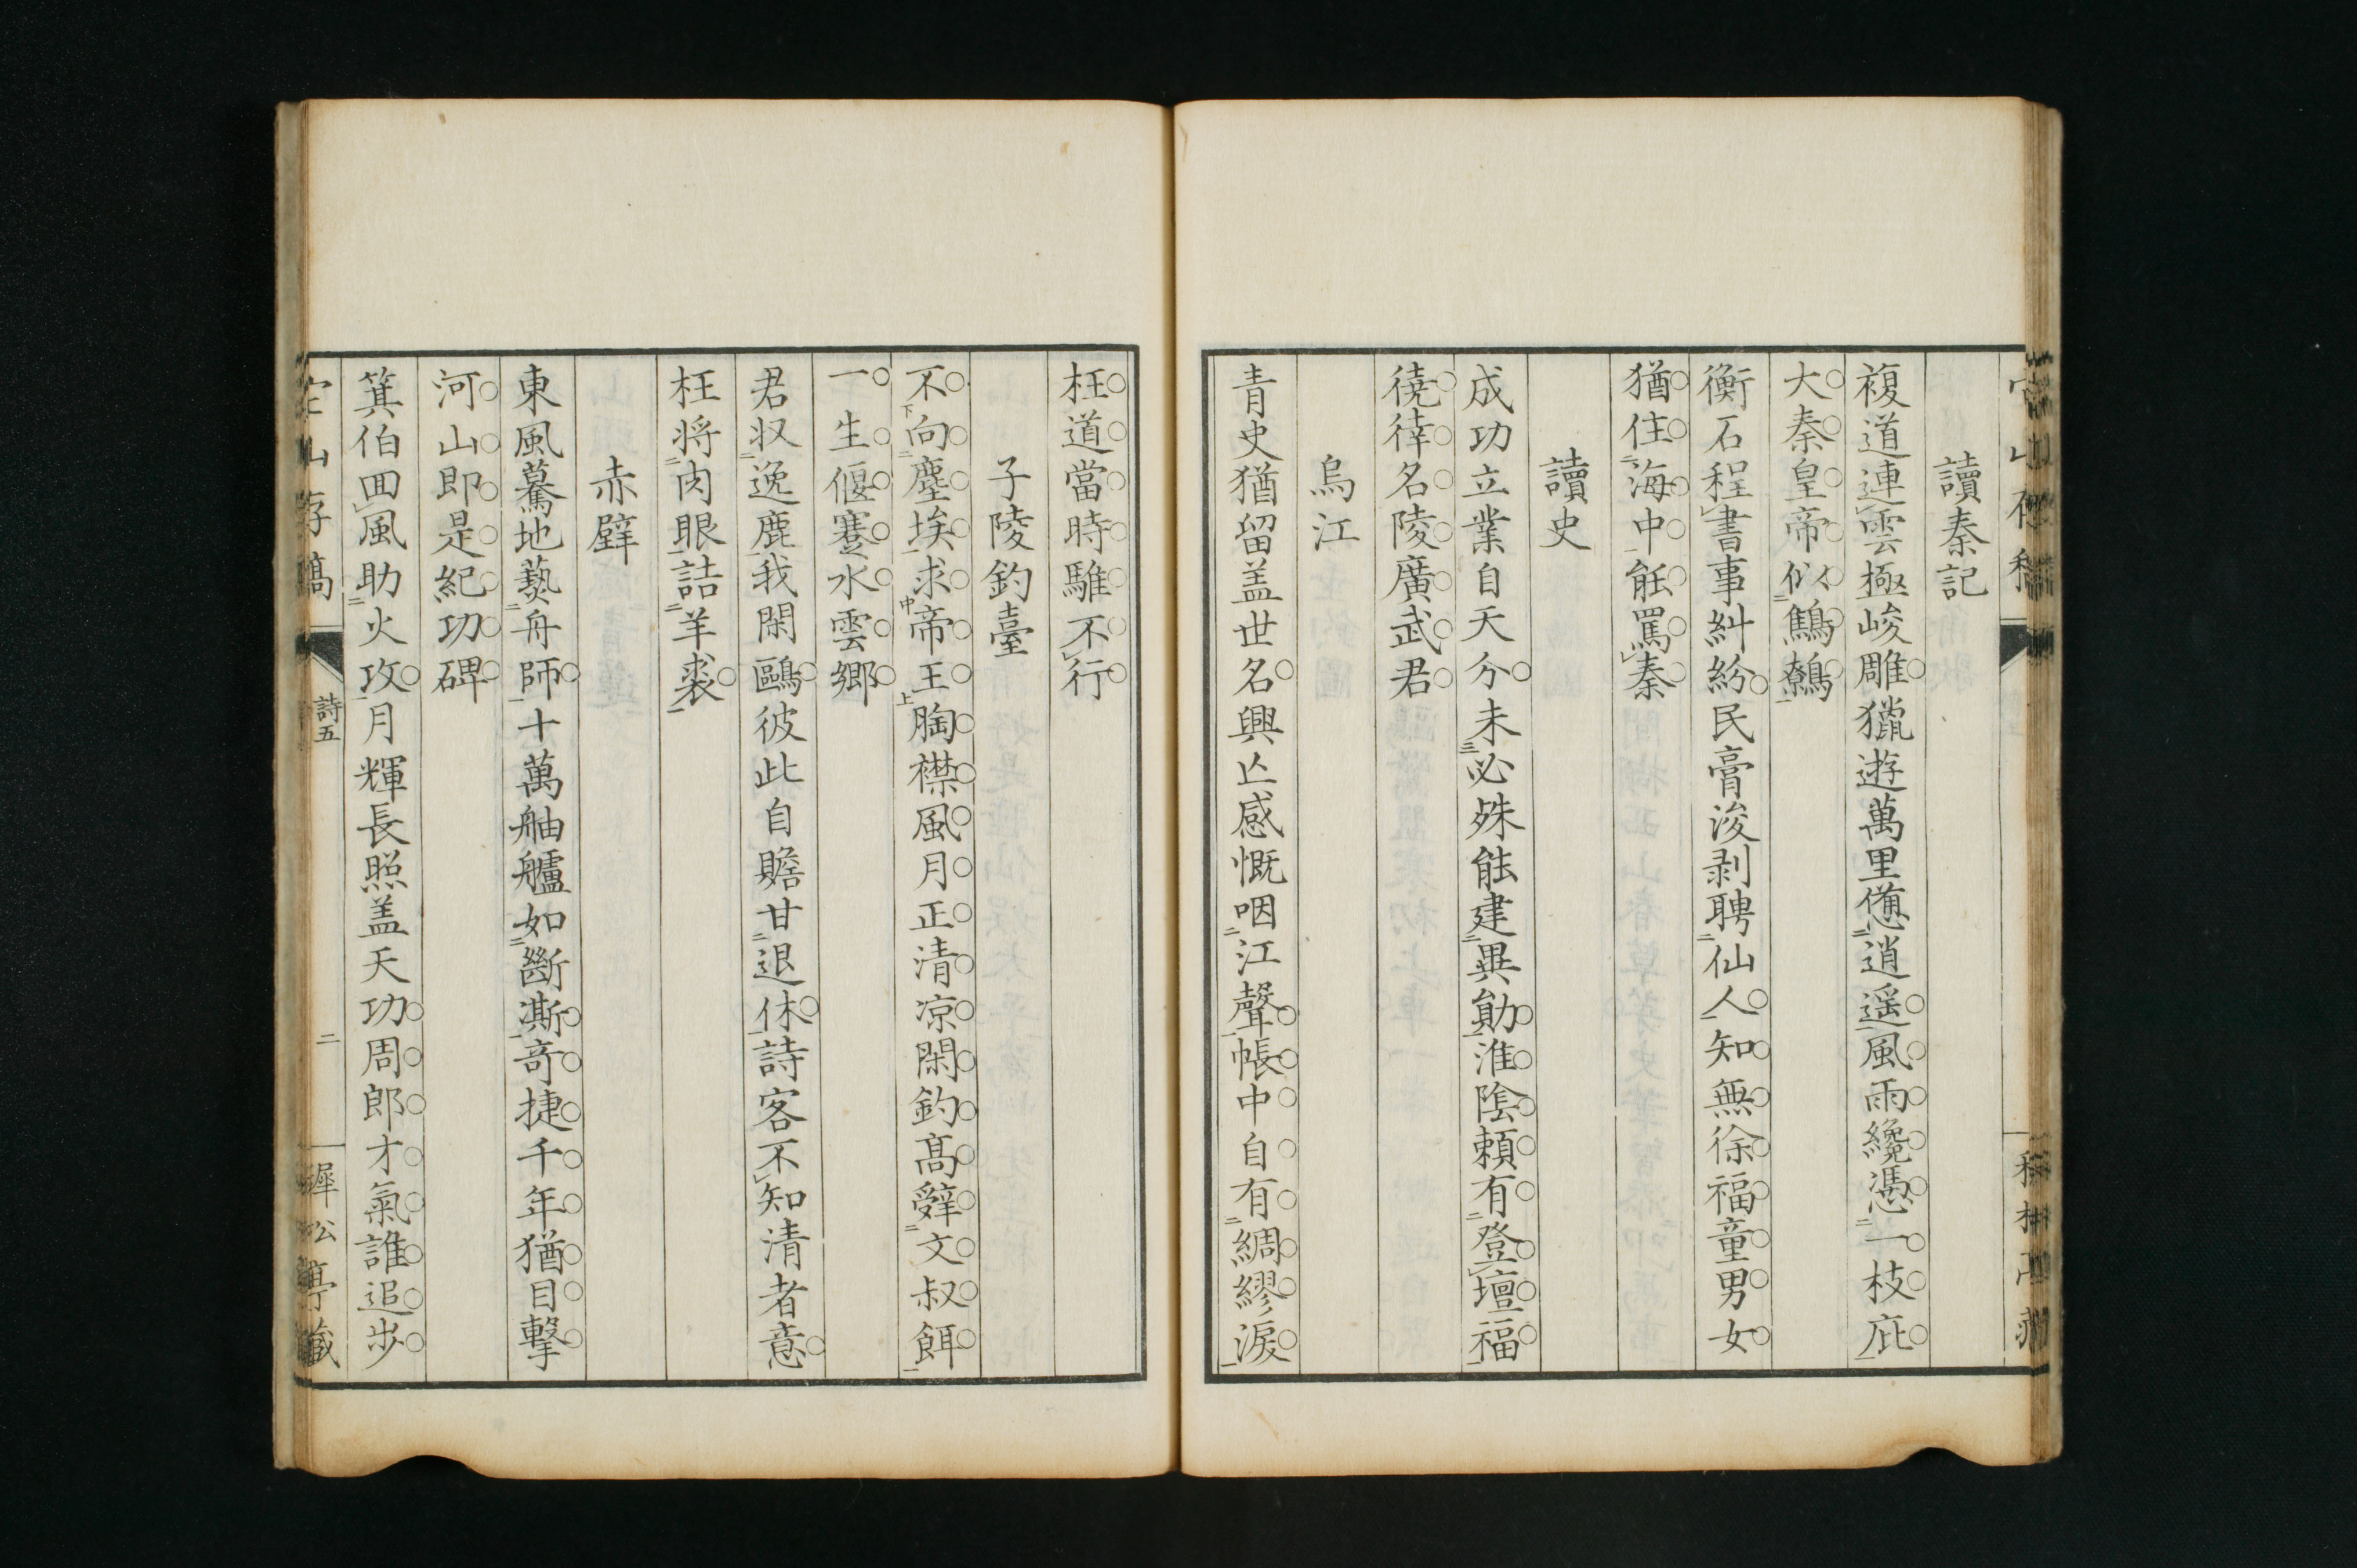 讀秦記
複道連雲極峻雕獵遊萬里憊逍遥風雨纔憑一枝庇
大秦皇帝似鷦鷯
衡石程書事糾紛民膏浚剥聘仙人知無徐福童男女
猶住海中能罵秦
讀史
成功立業自天分未必殊能建異勛淮陰頼有登壇福
徼倖名陵廣武君
烏江
青史猶留盖世名興亾感慨咽江聲帳中自有綢繆淚
枉道當時騅不行
子陵釣臺
不向塵埃求帝王胸襟風月正清凉閑釣髙辭文叔餌
一生偃蹇水雲郷
君収逸鹿我閑鷗彼此自贍甘退休詩客不知清者意
枉将肉眼詰羊裘
赤壁
東風驀地爇舟師十萬舳艫如斷澌竒捷千年猶目擊
河山即是紀功碑
箕伯囬風助火攻月輝長照盖天功周郎才氣誰追步
山存稿
詩五
二
松亭藏